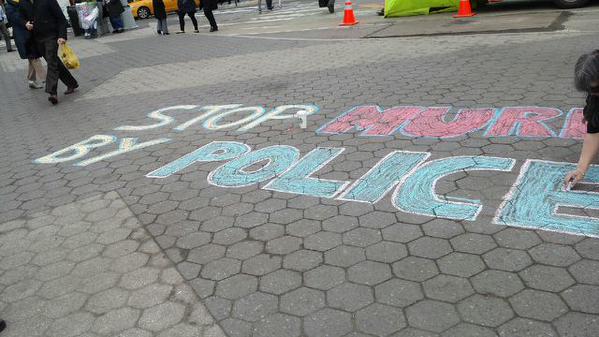 STOP MUR
BY POLICE